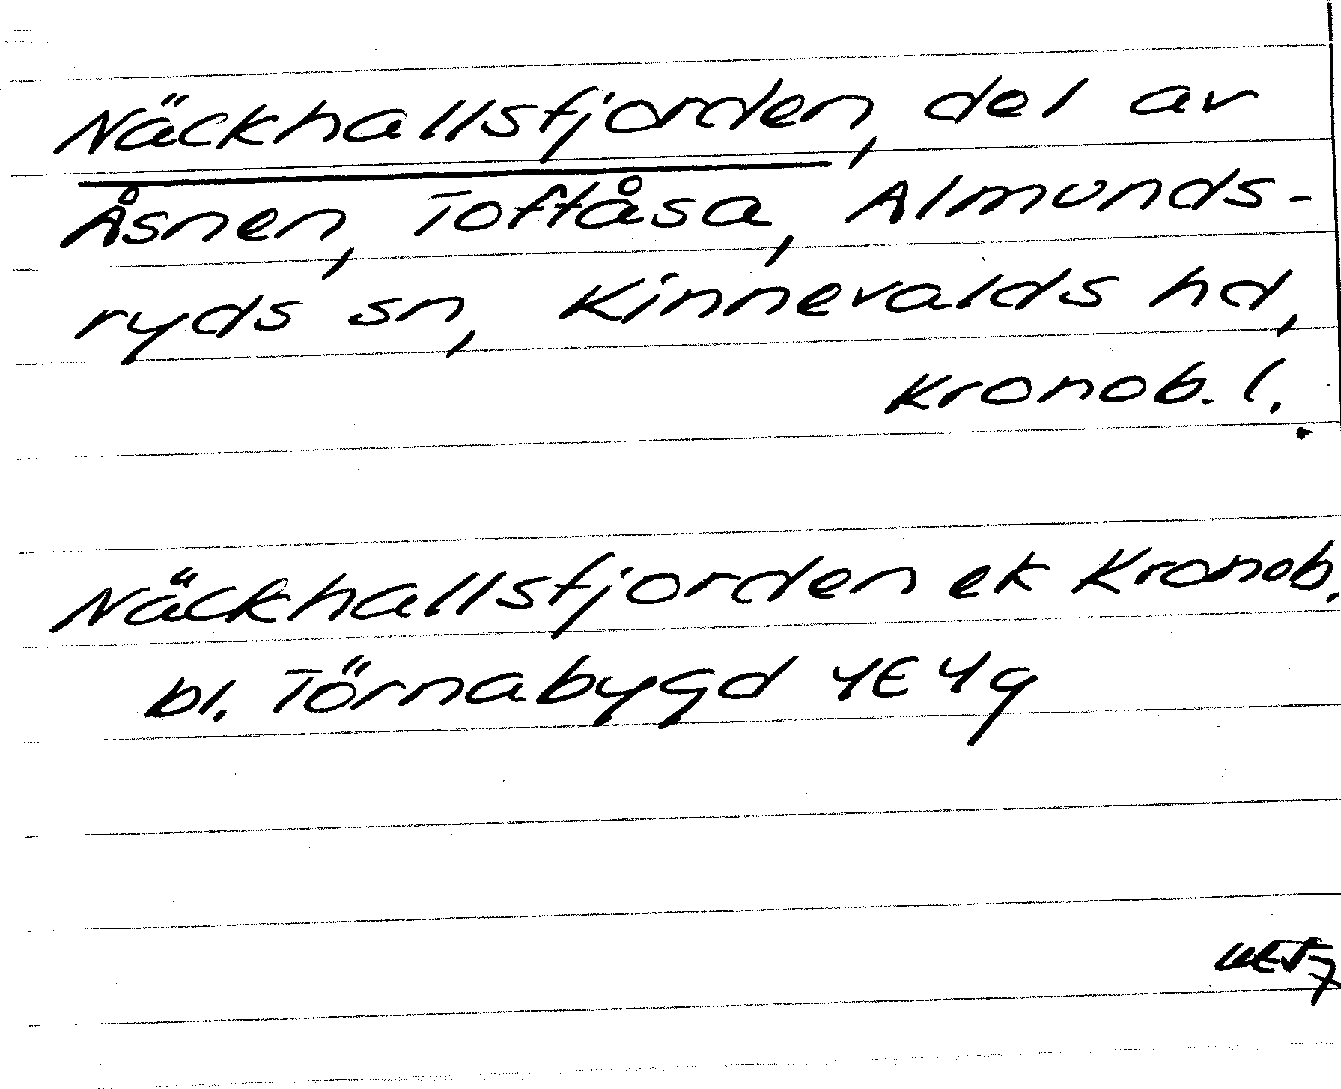 Näckhallsfjorden, del av
Åsnen, Toftåsa, Almunds-
ryds sn, Kinnevalds hd,
Kronob. l.
Näckhallsfjorden ek Kronob.
bl. Törnabygd 4E4g